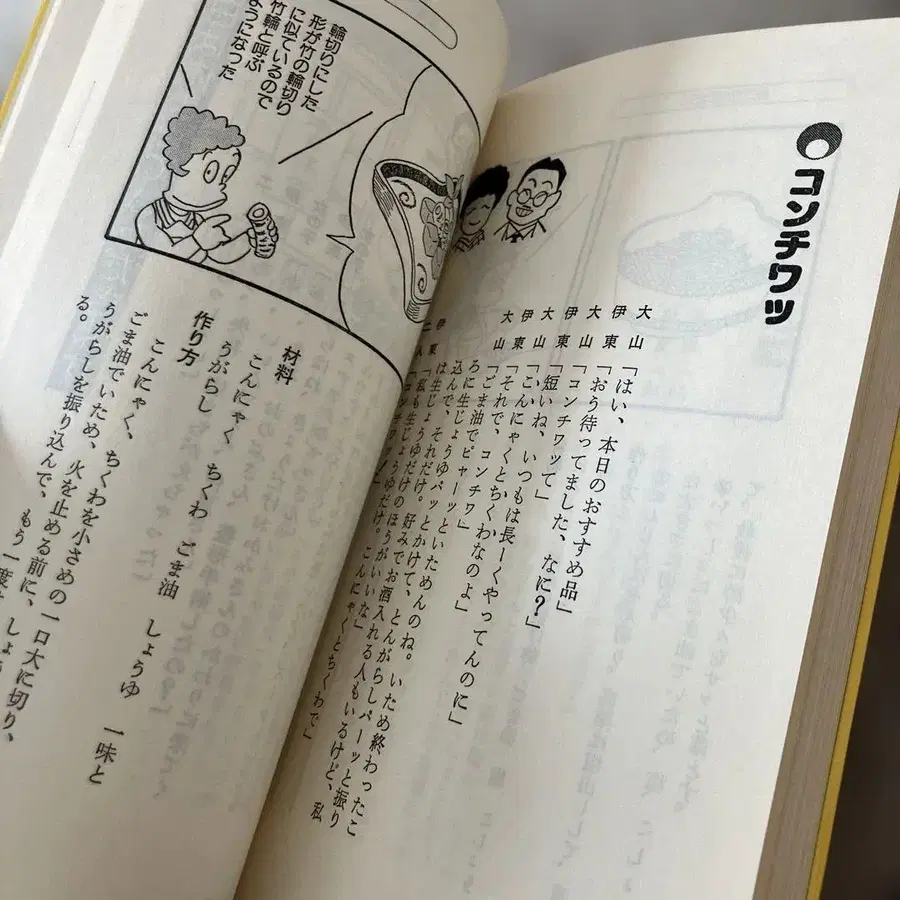 コンチワッ
大山「はい、本日のおすすめ品」
伊東「おう待ってました、なに？」
大山「コンチワッて」
伊東「短いね、いつもは長ーくやってんのに」
大山「こんにゃくとちくわなのよ」
伊東「それで、コンチワ」
大山「ごま油でピャーーッといためんのね。いため終わったこ
ろに生じょうゆパッとかけて、とんがらしパーッと振り
込んで、それだけ。好みでお酒入れる人もいるけど、私
は生じょうゆだけ。
伊東「私も生じょうゆだけのほうがいいな」
二人「コンチワッ！ こんにゃくとちくわで」
輪切りにした
形が竹の輪切り
に似ているので
竹輪と呼ぶ
ようになった
材料
こんにゃく ちくわ ごま油 しょうゆ 一味と
うがらし
作り方
こんにゃく、ちくわを小さめの一口大に切り、
ごま油でいため、火を止める前に、しょう
うがらしを振り込んで、もう一度
る。